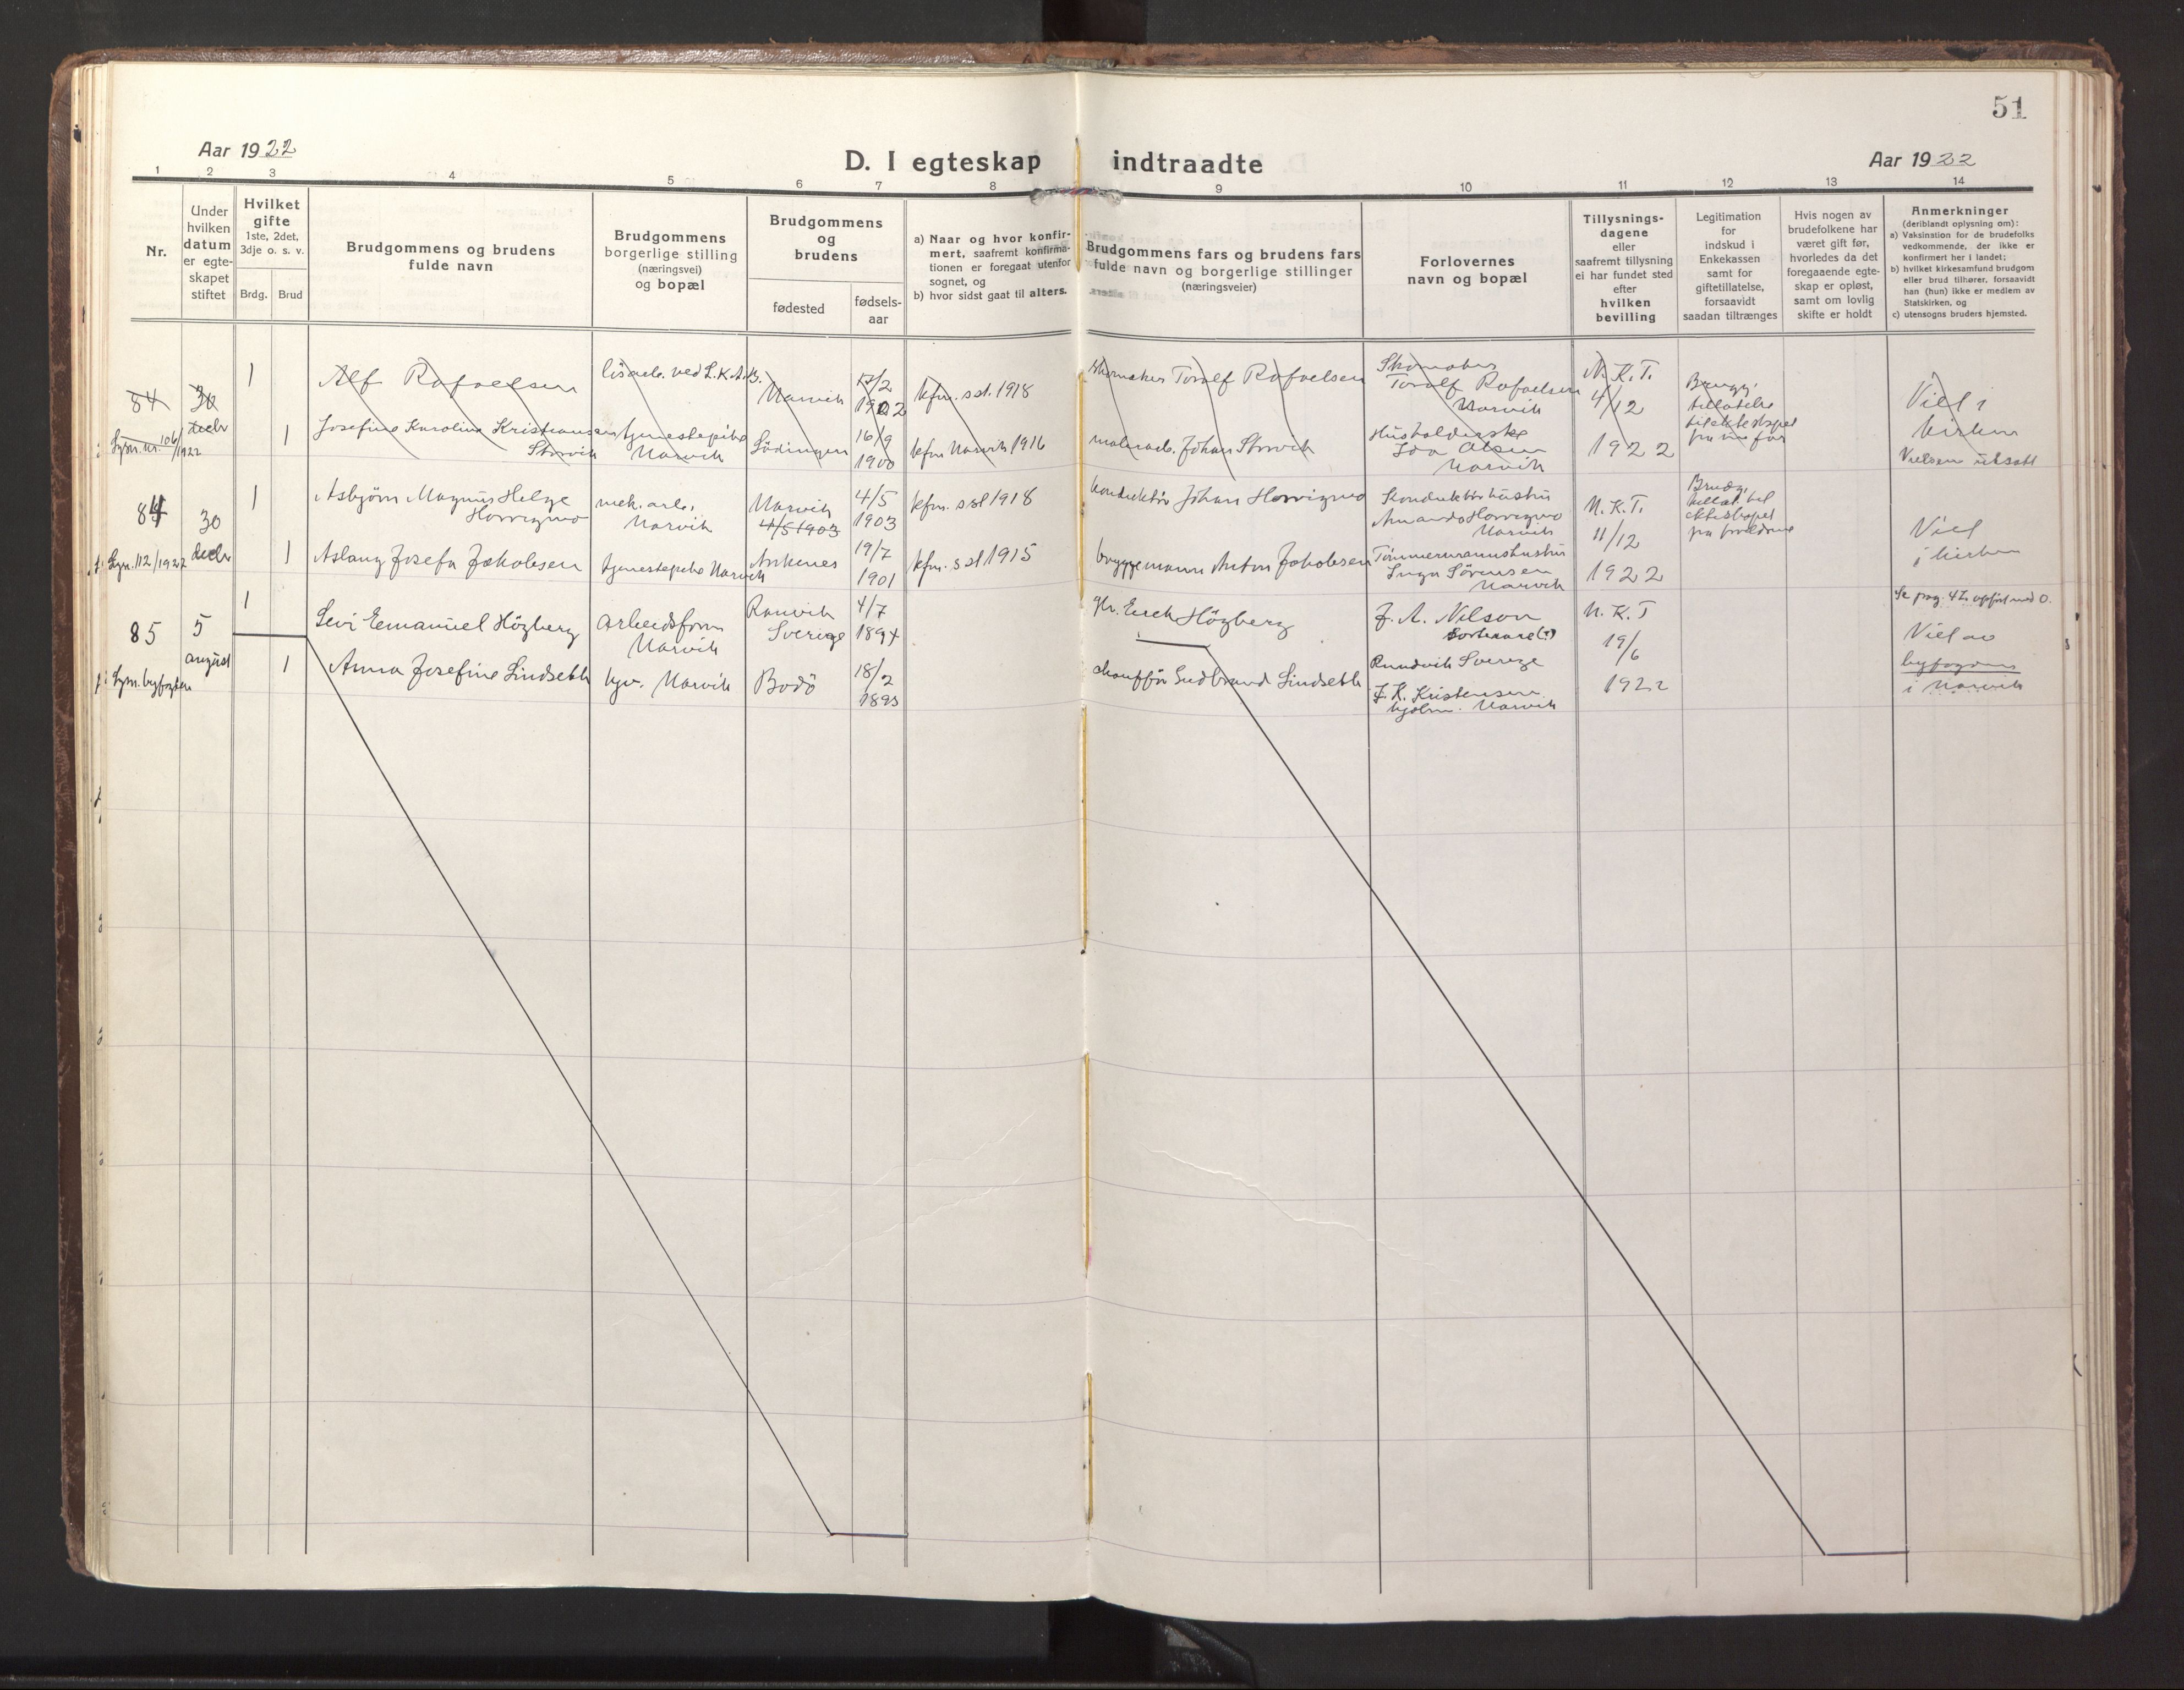 51
Aar 1922
D. I egteskap indtraadte
Aar 1922
1 2 3 4 5 6 7 8 9 10 11 12 13 14
Nr.
Under
hvilken
datum
er egte-
skapet
stiftet
Hvilket
gifte
1ste, 2det,
3dje o. s. v.
Brdg. Brud
Brudgommens og brudens
fulde navn
Brudgommens
borgerlige stilling
(næringsvei)
og bopæl
Brudgommens
og
brudens
fødested
fødsels-
aar
a) Naar og hvor konfir-
mert, saafremt konfirma-
tionen er foregaat utenfor
sognet, og
b) hvor sidst gaat til alters.
Brudgommens fars og brudens fars
fulde navn og borgerlige stillinger
(næringsveier)
Forlovernes
navn og bopæl
Tillysnings-
dagene
eller
saafremt tillysning
ei har fundet sted
efter
hvilken
bevilling
Legitimation
for
indskud i
Enkekassen
samt for
giftetillatelse,
forsaavidt
saadan tiltrænges
Hvis nogen av
brudefolkene har
været gift før,
hvorledes da det
foregaaende egte-
skap er opløst,
samt om lovlig
skifte er holdt
Anmerkninger
(deriblandt oplysning om):
a) Vaksination for de brudefolks
vedkommende, der ikke er
konfirmert her i landet;
b) hvilket kirkesamfund brudgom
eller brud tilhører, forsaavidt
han (hun) ikke er medlem av
Statskirken, og
c) utensogns bruders hjemsted.
84
Lysn. nr. 106/1922
30
decbr
1
1
Alf Rafaelsen
Josefine Karoline Kristiansen
Storvik
ved L.K.A.B.
tjenestepike
Narvik
Narvik
Lödingen
17/2
1902
16/9
1900
kfm. sst. 1918
kfm. Narvik 1916
skomaker Toralf Rafaelsen
malerarb. Johan Storvik
Skomaker
Toralf Rafaelsen
Narvik
Husholderske
Ida Olsen
Narvik
N.K.T.
4/12
1922
tillatelse
til ekteskapet
Viet i
kirken
Vielsen utsatt
84
Lysn. 112/1922
30
decbr
1
1
Asbjørn Magnus Helge
Horrigmo
Aslaug Josefa Jakobsen
mek. arb.
Narvik
tjenestepike Narvik
Narvik
4/5 1903
Ankenes
4/5
1903
19/7
1901
kfm. sst 1918
kfm. sst 1915
konduktör Johan Horrigmo
bryggemann Anton Jakobsen
Konduktörhustru
Amanda Horrigmo
Narvik
Tömmermannshustru
Inga Sörensen
Narvik
N.K.T.
11/12
1922
Brudg.
tillat. til
ekteskapet
fra foreldrene
Viet
i kirken
85
Lysn. byfogden
5
august
1
1
Levi Emanuel Högberg
Anna Josefine Lindseth
arbeidsform
Narvik
hjv. Narvik
Sverige
Bodö
4/7
1894
18/2
1893
Erick Högberg
chaufför Gudbrand Lindseth
J. A. Nilson
Rundvik Sverige
J. K. Kristensen
Narvik
N.K.T
19/6
1922
Se pag. 42 opfört med O.
Viet av
byfogden
i Narvik